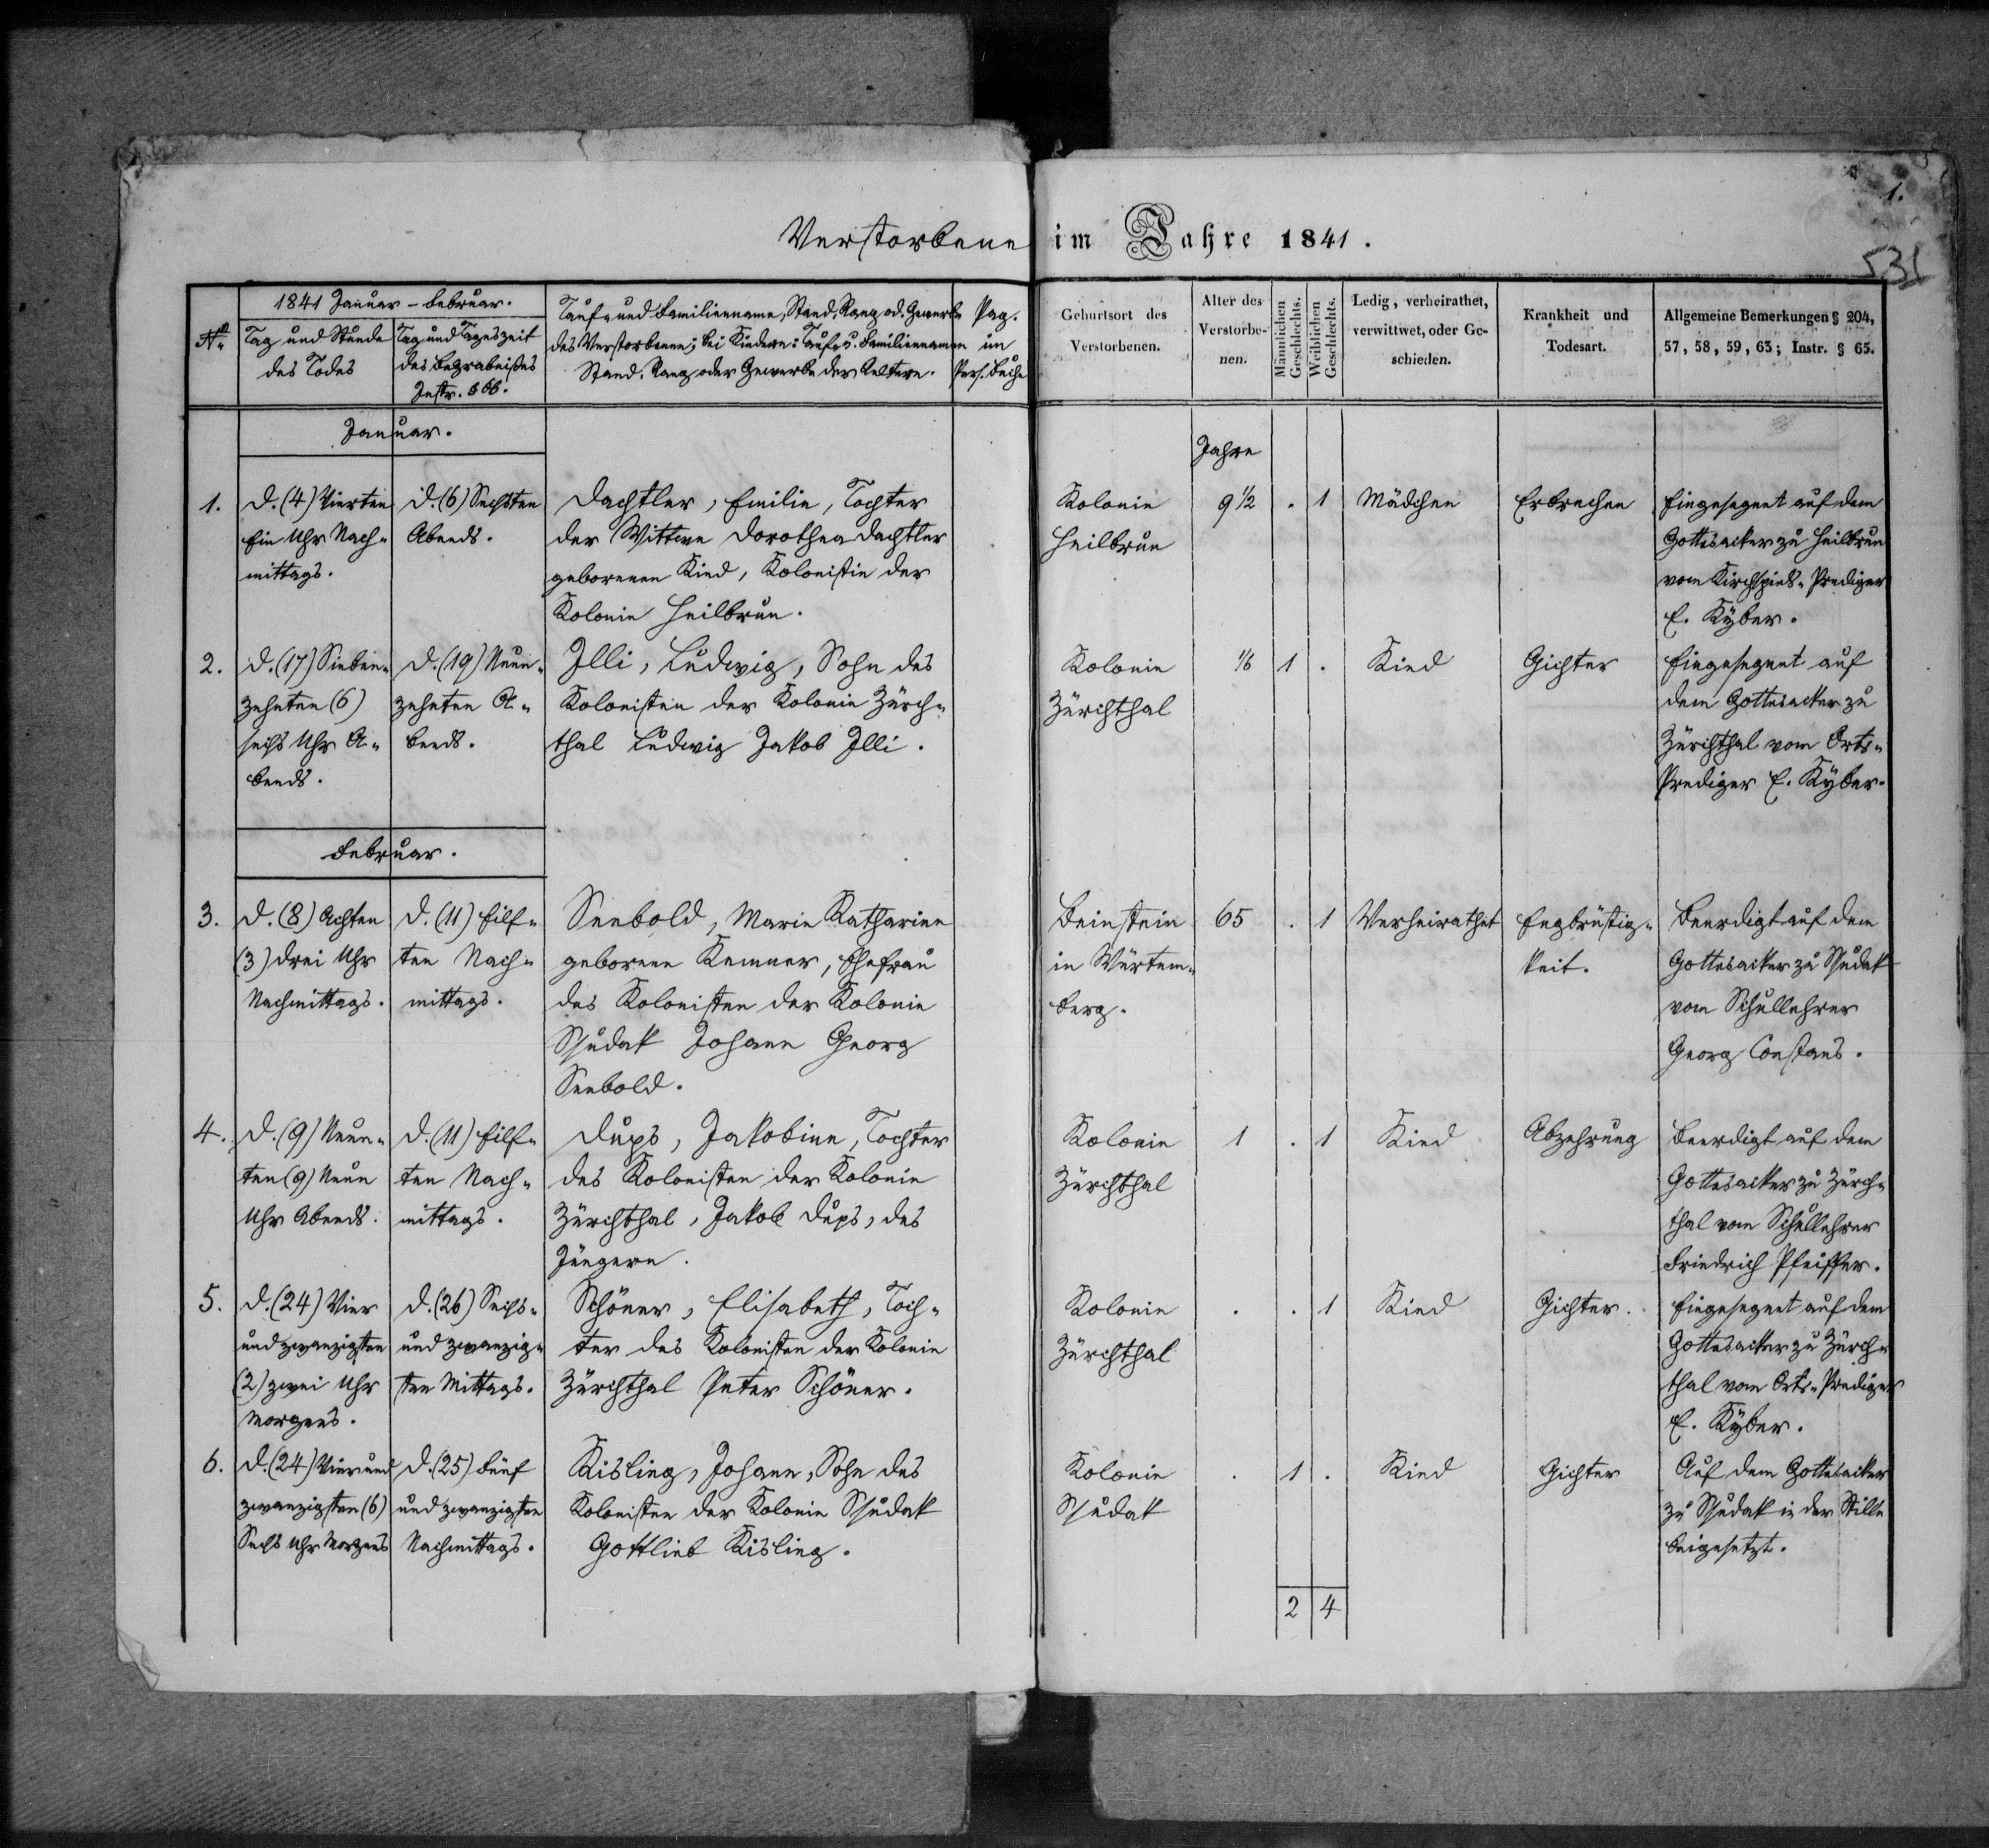 1.
Verstorbene im Jahre 1841.
531
No
1841 Januar - Februar.
Tag und Stunde
des Todes
Tag und Tageszeit
des Begräbnißes
Instr. § 66.
Tauf- und Familienname, Stand, Rang od. Gewerbe
des Verstorbenen; bei Kindern: Tauf- u. Familiennamen
Stand, Rang oder Gewerbe der Aeltern.
Pag.
im
Pers. Buche
Geburtsort des
Verstorbenen.
Alter des
Verstorbe-
nen.
Männlichen
Geschlechts.
Weiblichen
Geschlechts.
Ledig, verheirathet,
verwittwet, oder Ge-
schieden.
Krankheit und
Todesart.
Allgemeine Bemerkungen § 204,
57, 58, 59, 63; Instr. § 65.
Januar.
Jahre
1.
D. (4) Vierten
Ein Uhr Nach-
mittags.
D. (6) Sechsten
Abends.
Dachtler, Emilie, Tochter
der Wittwe Dorothea Dachtler
geborenen Kind, Kolonistin der
Kolonie Heilbrun.
Kolonie
Heilbrun
9 1/2
.
1
Mädchen
Erbrechen
Eingesegnet auf dem
Gottesacker zu Heilbrun
vom Kirchspiels-Prediger
E. Kyber.
2.
D. (17) Sieben-
zehnten (6)
sechs Uhr A-
bends.
D. (19) Neun-
zehnten A-
bends.
Illi, Ludwig, Sohn des
Kolonisten der Kolonie Zürch-
thal Ludwig Jakob Illi.
Kolonie
Zürchthal
1/6
1
.
Kind
Gichter
Eingesegnet auf
dem Gottesacker zu
Zürchthal vom Orts-
Prediger E. Kyber.
Februar.
3.
D. (8) Achten
(3) drei Uhr
Nachmittags.
D. (11) Eilf-
ten Nach-
mittags.
Seebold, Marie Katharine
geborene Kemner, Ehefrau
des Kolonisten der Kolonie
Ssudak Johann Georg
Seebold.
Beinstein
in Würtem-
berg.
65
.
1
Verheirathet
Engbrüstig-
keit.
Beerdigt auf dem
Gottesacker zu Ssudak
vom Schullehrer
Georg Constans.
4.
D. (9) Neun-
ten (9) Neun
Uhr Abends.
D. (11) Eilf-
ten Nach-
mittags.
Dups, Jakobine, Tochter
des Kolonisten der Kolonie
Zürchthal, Jakob Dups, des
Jüngern.
Kolonie
Zürchthal
1
.
1
Kind
Abzehrung
Beerdigt auf dem
Gottesacker zu Zürch-
thal vom Schullehrer
Friedrich Pfeiffer.
5.
D. (24) Vier
und zwanzigsten
(2) zwei Uhr
Morgens.
D. (26) Sechs-
und zwanzig-
sten Mittags.
Schöner, Elisabeth, Toch-
ter des Kolonisten der Kolonie
Zürchthal Peter Schöner.
Kolonie
Zürchthal
.
.
1
Kind
Gichter.
Eingesegnet auf dem
Gottesacker zu Zürch-
thal vom Orts-Prediger
E. Kyber.
6.
D. (24) Vierund
zwanzigsten (6)
Sechs Uhr Morgens
D. (25) Fünf
und zwanzigsten
Nachmittags.
Kisling, Johann, Sohn des
Kolonisten der Kolonie Ssudak
Gottlieb Kisling.
Kolonie
Ssudak
.
1
.
Kind
Gichter
Auf dem Gottesacker
zu Ssudak in der Stille
beigesetzt.
2
4